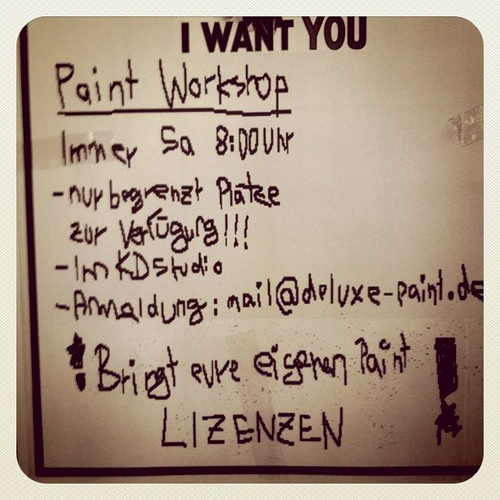 I WANT YOU
Paint Workshop
Immer Sa 8:00Uhr
-nur begrenzt Plätze
zur Verfügung!!!
-Im KDStudio
-Anmeldung: mail@deluxe-paint.de
! Bringt eure eigenen Paint !
LIZENZEN